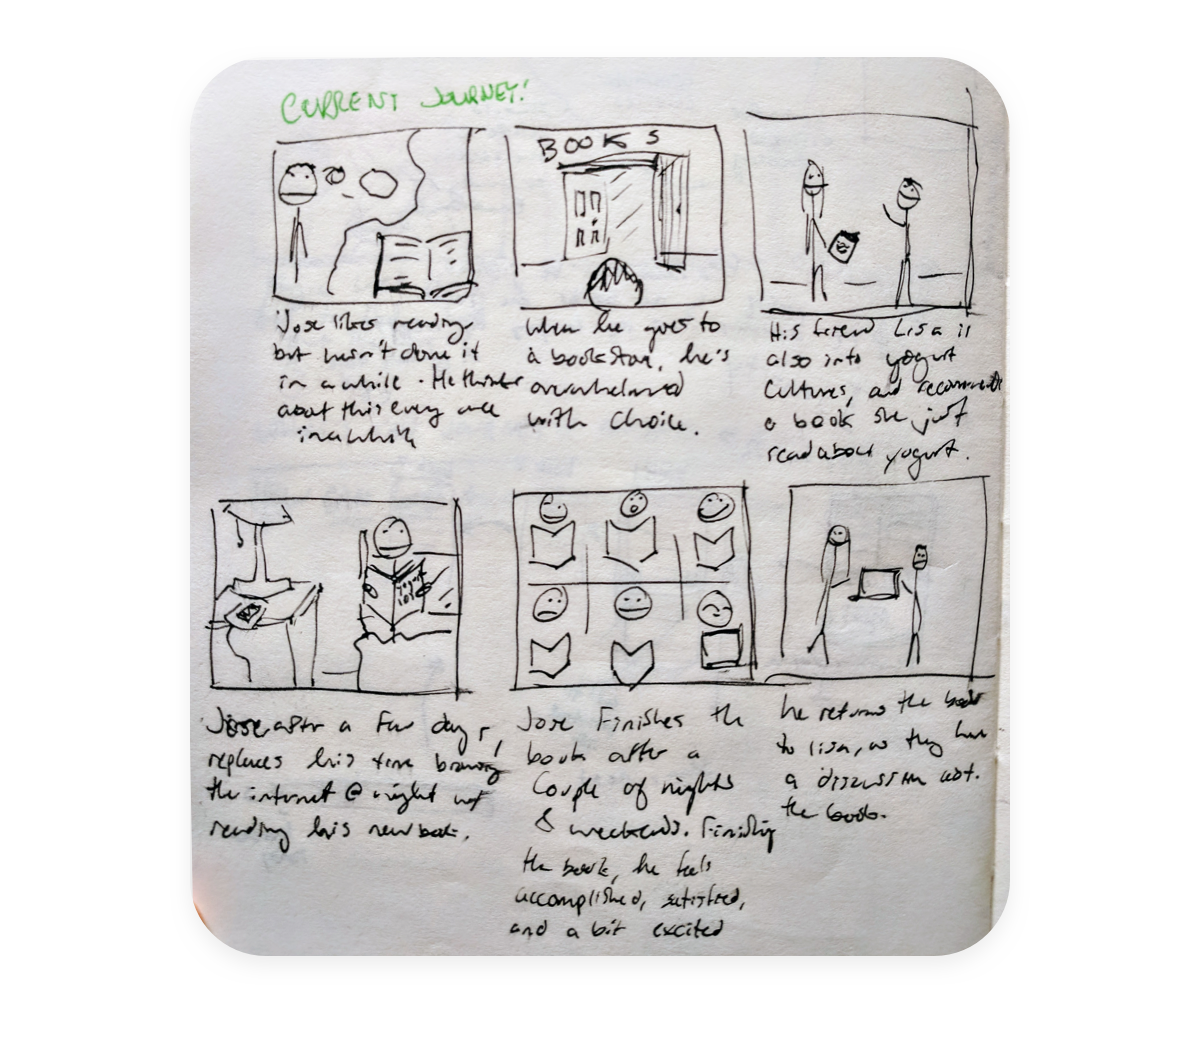 CURRENT JOURNEY!
BOOKS
Jose likes reading
but hasn't done it
in a while. He thinks
about this every once
in a while
When he goes to
a bookstore, he's
overwhelmed
with choice.
His friend Lisa is
also into yogurt
cultures, and recommends
a book she just
read about yogurt.
yogurt
101
Jose after a few days,
replaces his time browsing
the internet @ night w/
reading his new book.
Jose finishes the
book after a
couple of nights
& weekends. Finishing
the book, he feels
accomplished, satisfied,
and a bit excited
he returns the book
to lisa, as they have
a discussion abt.
the book.